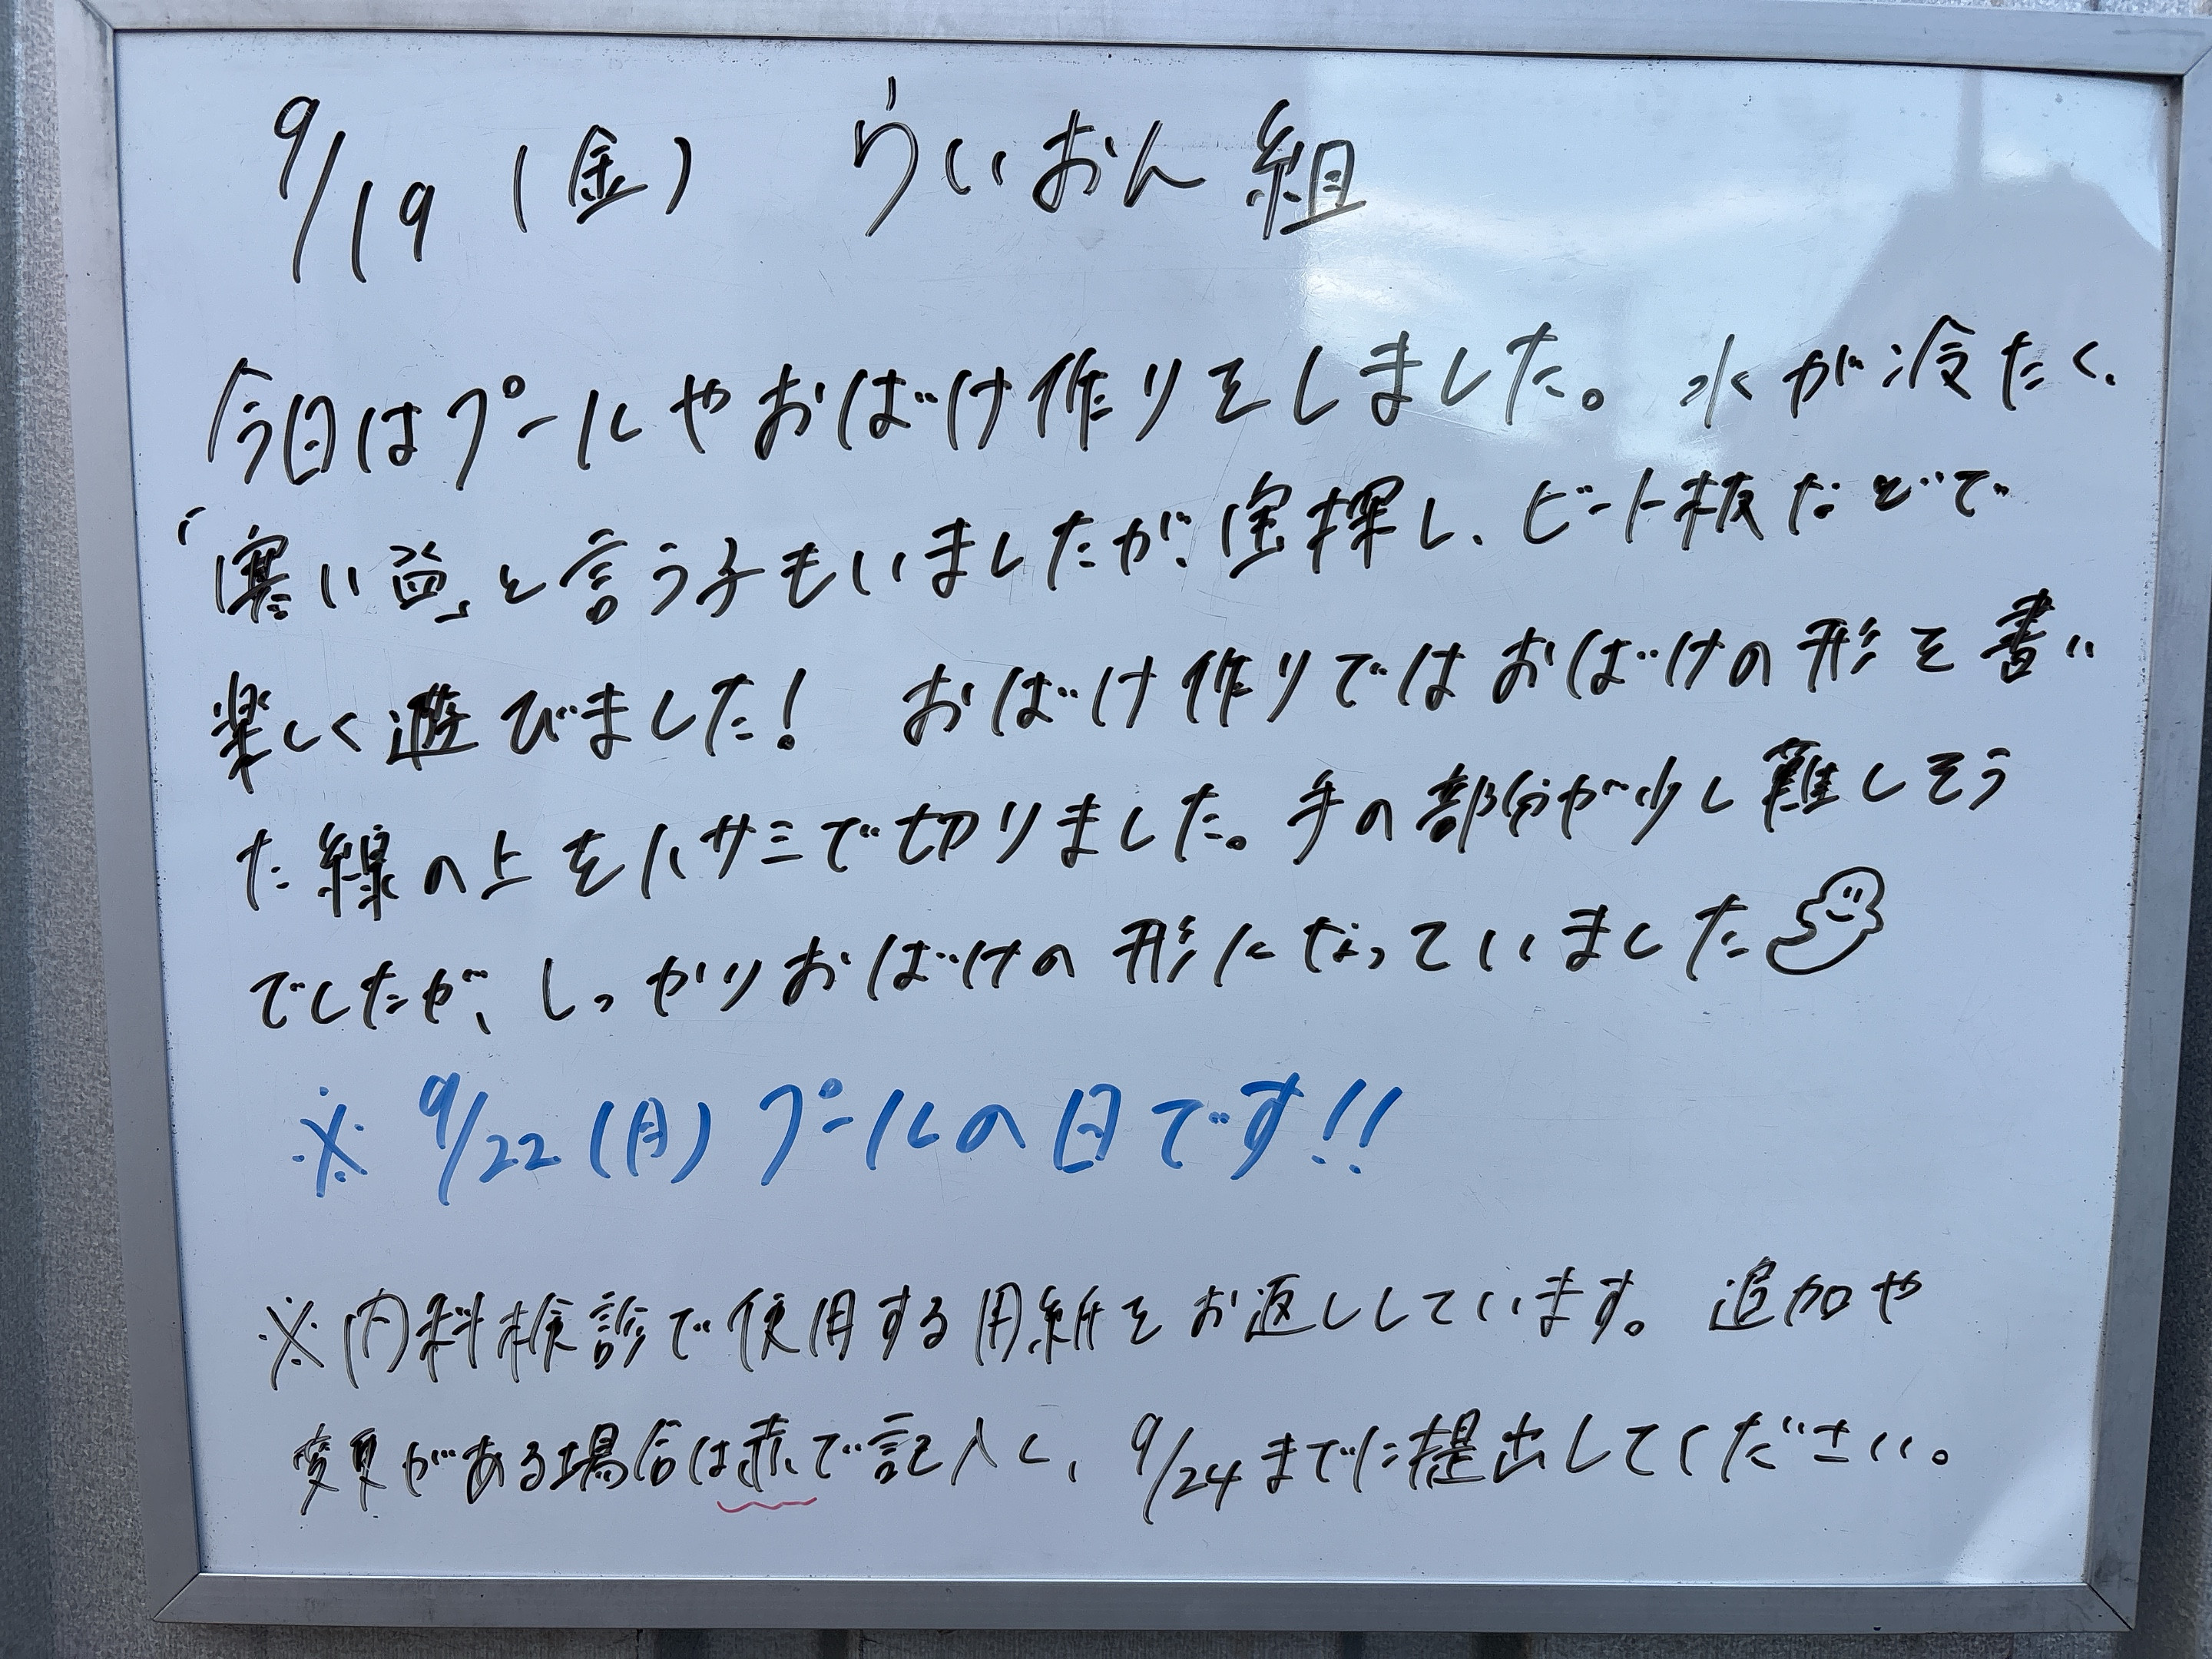 9/19(金) らいおん組
今日はプールやおばけ作りをしました。水が冷たく、
「寒い」と言う子もいましたが、宝探し、ビート板などで
楽しく遊びました! おばけ作りではおばけの形を書い
た線の上をハサミで切りました。手の部分が少し難しそう
でしたが、しっかりおばけの形になっていました
※9/22(月)プールの日です!!
※内科検診で使用する用紙をお返ししています。追加や
変更がある場合は赤で記入し、9/24までに提出してください。